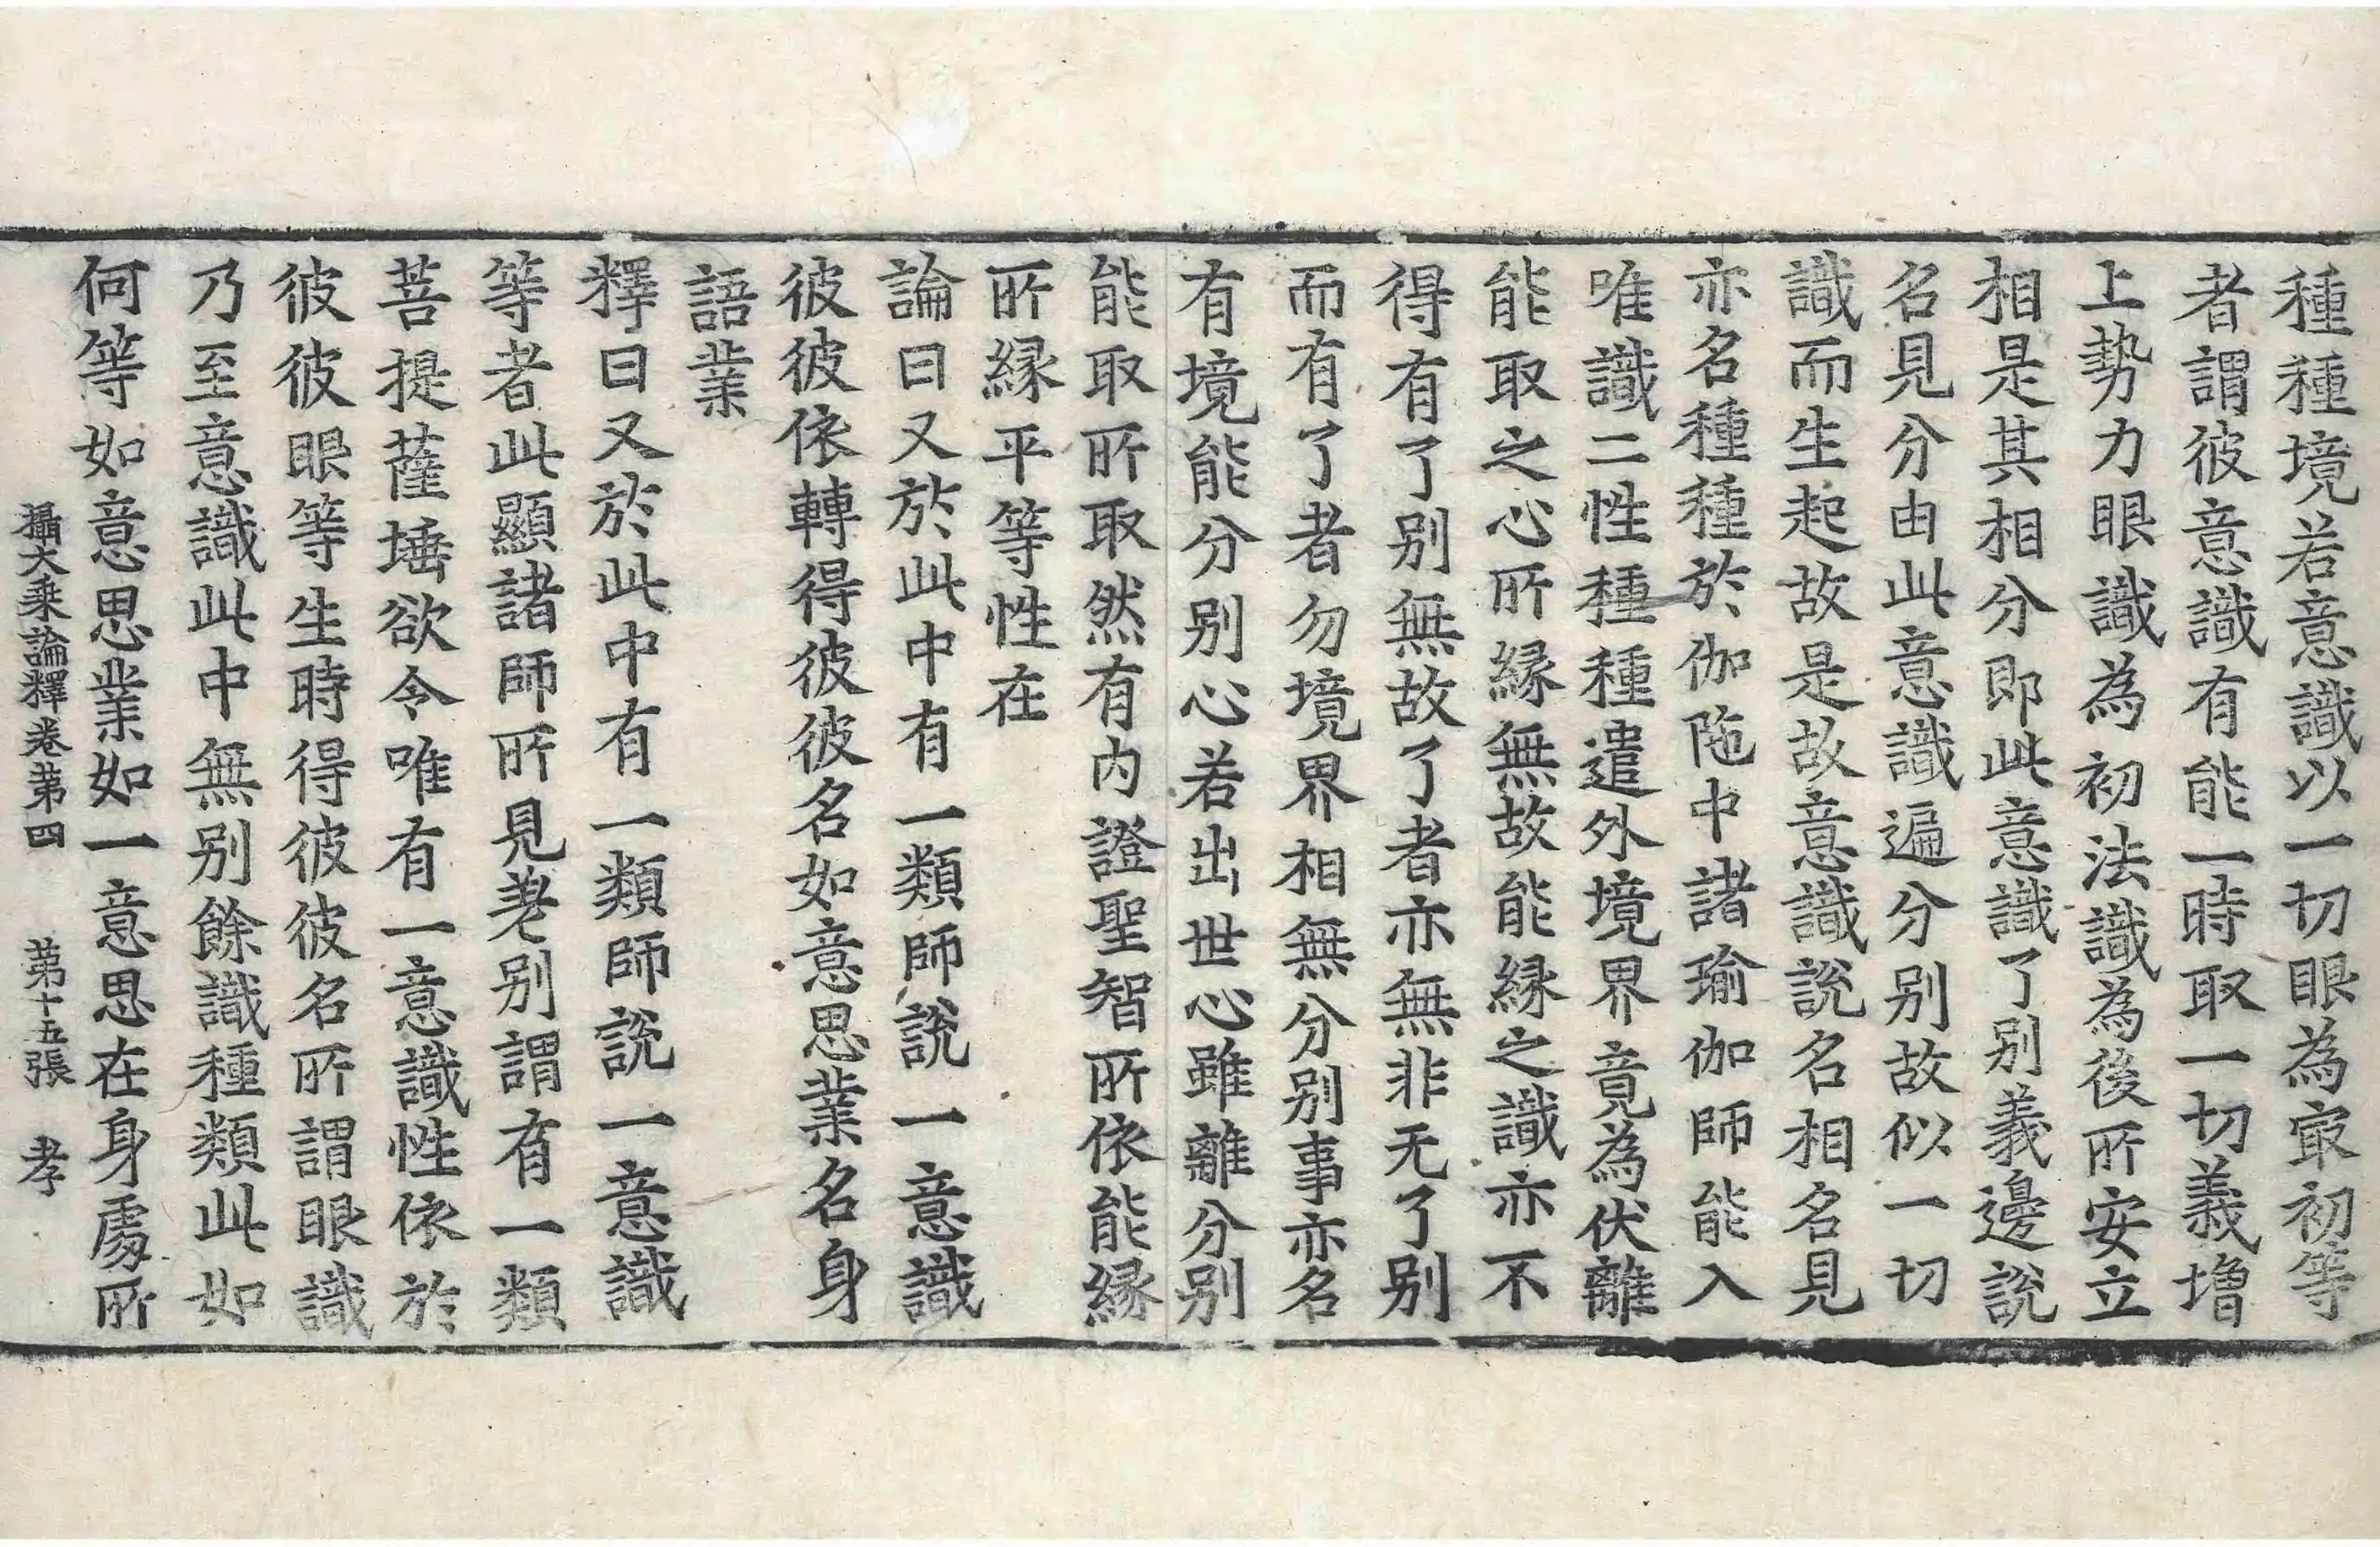 種種境若意識以一切眼為㝡初等
者謂彼意識有能一時取一切義增
上勢力眼識為初法識為後所安立
相是其相分即此意識了別義邊說
名見分由此意識遍分別故似一切
識而生起故是故意識說名相名見
亦名種種於伽陁中諸瑜伽師能入
唯識二性種種遣外境界竟為伏離
能取之心所緣無故能緣之識亦不
得有了別無故了者亦無非无了別
而有了者勿境界相無分別事亦名
有境能分別心若出世心雖離分別
能取所取然有內證聖智所依能緣
所緣平等性在
論曰又於此中有一類師說一意識
彼彼依轉得彼彼名如意思業名身
語業
釋曰又於此中有一類師說一意識
等者此顯諸師所見差別謂有一類
菩提薩埵欲令唯有一意識性依於
彼彼眼等生時得彼彼名所謂眼識
乃至意識此中無別餘識種類此如
何等如意思業如一意思在身處所
攝大乘論釋卷第四 第十五張 孝